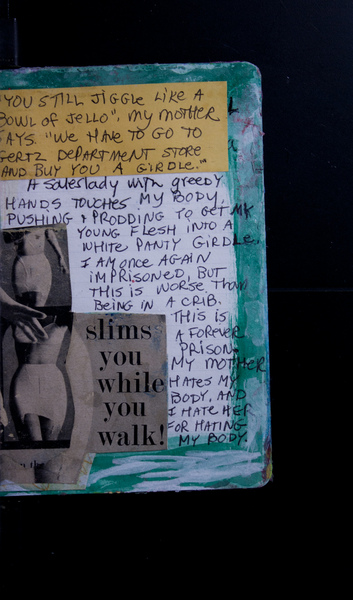 "YOU STILL JIGGLE LIKE A
BOWL OF JELLO", MY MOTHER
SAYS. "WE HAVE TO GO TO
GERTZ DEPARTMENT STORE
AND BUY YOU A GIRDLE."
A saleslady with greedy
HANDS TOUCHES MY BODY,
PUSHING & PRODDING TO GET MY
YOUNG FLESH INTO A
WHITE PANTY GIRDLE.
I AM once AGAIN
IMPRISONED, BUT
THIS IS WORSE Than
BEING IN A CRIB.
THIS IS
A FOREVER
PRISON.
MY MOTHER
HATES MY
BODY, AND
I HATE HER
FOR HATING
MY BODY.
slims
you
while
you
walk!